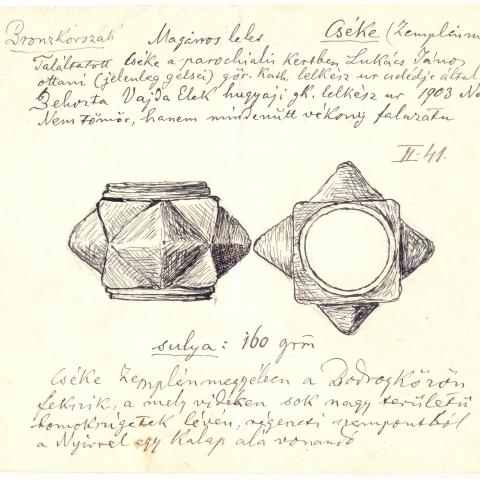 Bronzkorszak Magános lelet Cséke (Zemplénm
Találtatott Cséke a parochiális kertben Lukács János
ottani (jelenleg gelsei) gör. kath. lelkész ur cselédje által
Behozta Vajda Elek hugyaji gk. lelkész ur 1903 No
Nem tömör, hanem mindenütt vékony falazatu
II:41.
sulya: 160 grm
Cséke Zemplénmegyében a Bodrogközön
fekszik, a mely vidéken sok nagy területü
homokszigetek lévén, régészeti szempontból
a Nyirrel egy kalap alá vonandó